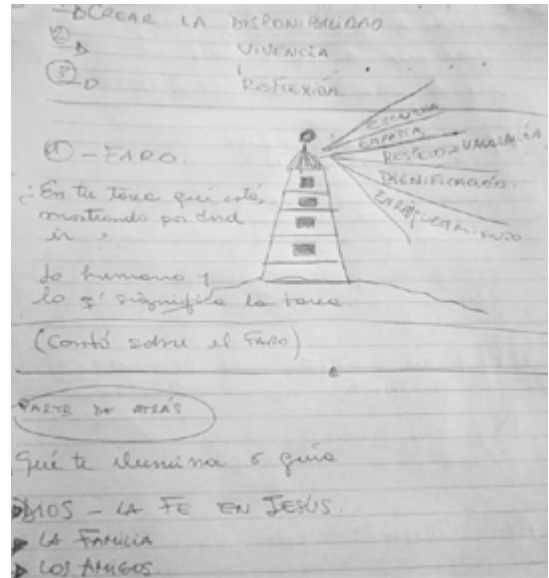 → CREAR LA DISPONIBILIDAD
② → VIVENCIA
③ → Reflexión
ESCUCHA
EMPATIA
RESPETO - VALORACIÓN
DIGNIFICACIÓN.
ENRIQUECIMIENTO
① - FARO.
¿En tu tarea qué está
mostrando por dnd
ir?
Lo humano y
lo q' significa la tarea.
(Contó sobre el FARO)
PARTE DE ATRÁS
Qué te ilumina o guía
DIOS - LA FE EN JESÚS.
LA FAMILIA
LOS AMIGOS